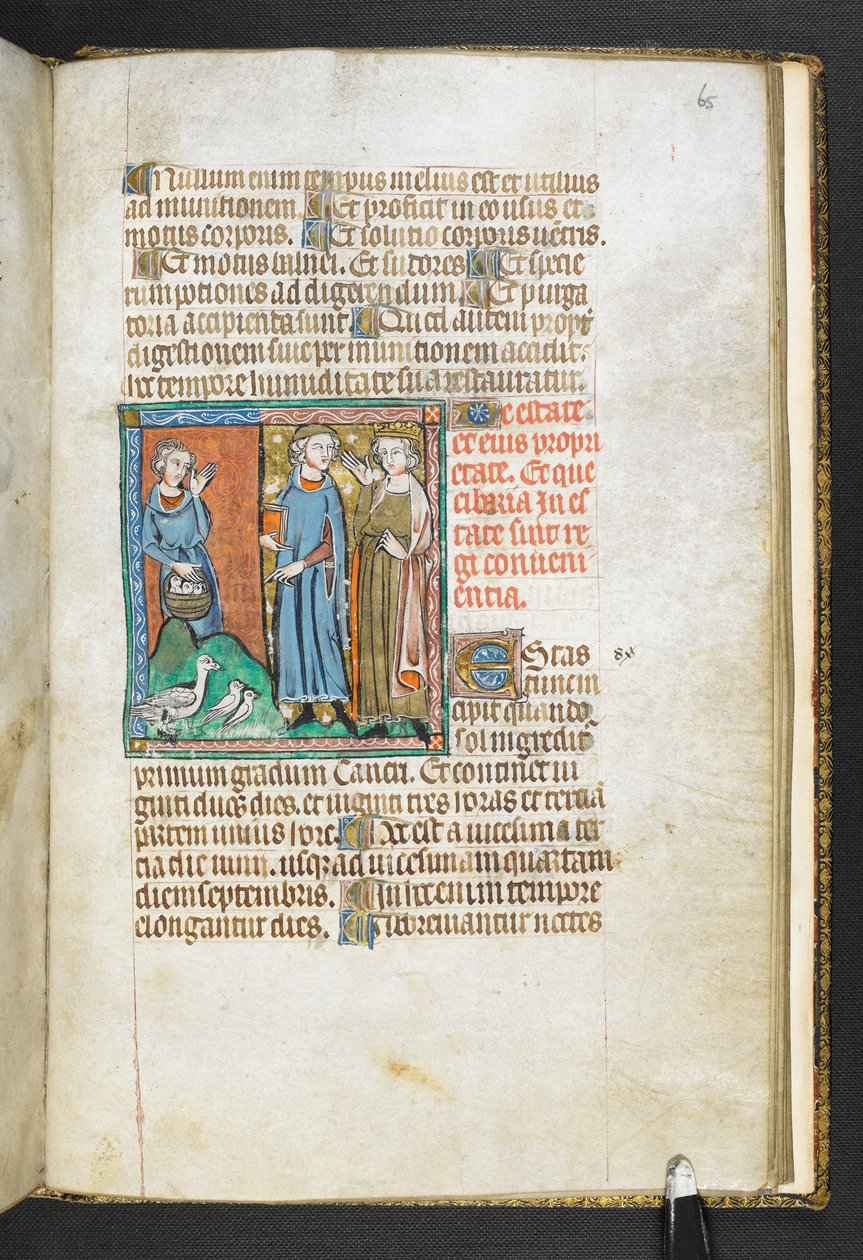 65
Nullum enim tempus melius est et utilius
ad munitionem. Et proficit in eo usus et
motus corporis. Et solutio corporis uẽtris.
Et motus balnei. Et sudores Et specie
rum potiones ad digerendum. Et purga
toria accipienda sunt. Quicq̃ autem propt̃
digestionem siue per munitionem accidit.
hec tempore humiditate sua restauratur.
De estate
et eius propri
etate. Et que
cibaria in es
tate sunt re
gi conueni
entia.
Estas
tunc in
cipit quando
sol ingredit᷑
primum gradum Cancri. Et continet ui
ginti duos dies. et uiginti tres horas et terciã
partem unius hore. Hec est a uicesima ter
cia die iunii. usq; ad uicesimam quartam
diem septembris. In hec enim tempore
elongantur dies. Abbreuiantur noctes